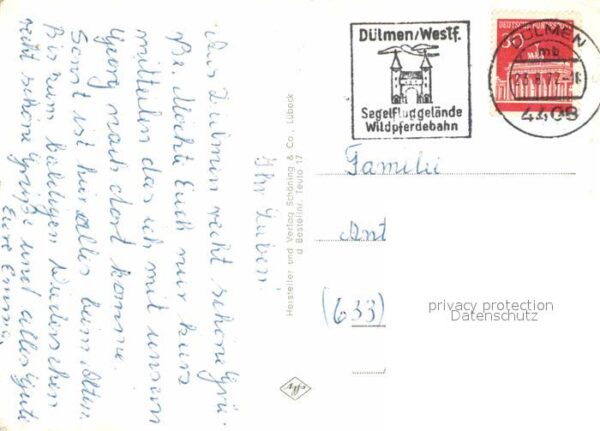 Ihr Lieben!
Aus Dülmen recht schöne Grü-
ße. Möchte Euch nur kurz
mitteilen das ich mit unserm
nach dort komme.
Sonst ist hier alles beim Alten.
Bis zum baldigen Wiedersehen
recht schöne Grüße und alles Gute
Eure
Hersteller und Verlag Schöning & Co., Lübeck
d Bestellnr. Teuto 17
Dülmen/Westf.
Segelfluggelände
Wildpferdebahn
DEUTSCHE BUNDESPOST
30
DÜLMEN
mb
4408
Familie
Amt
(633)
privacy protection
Datenschutz